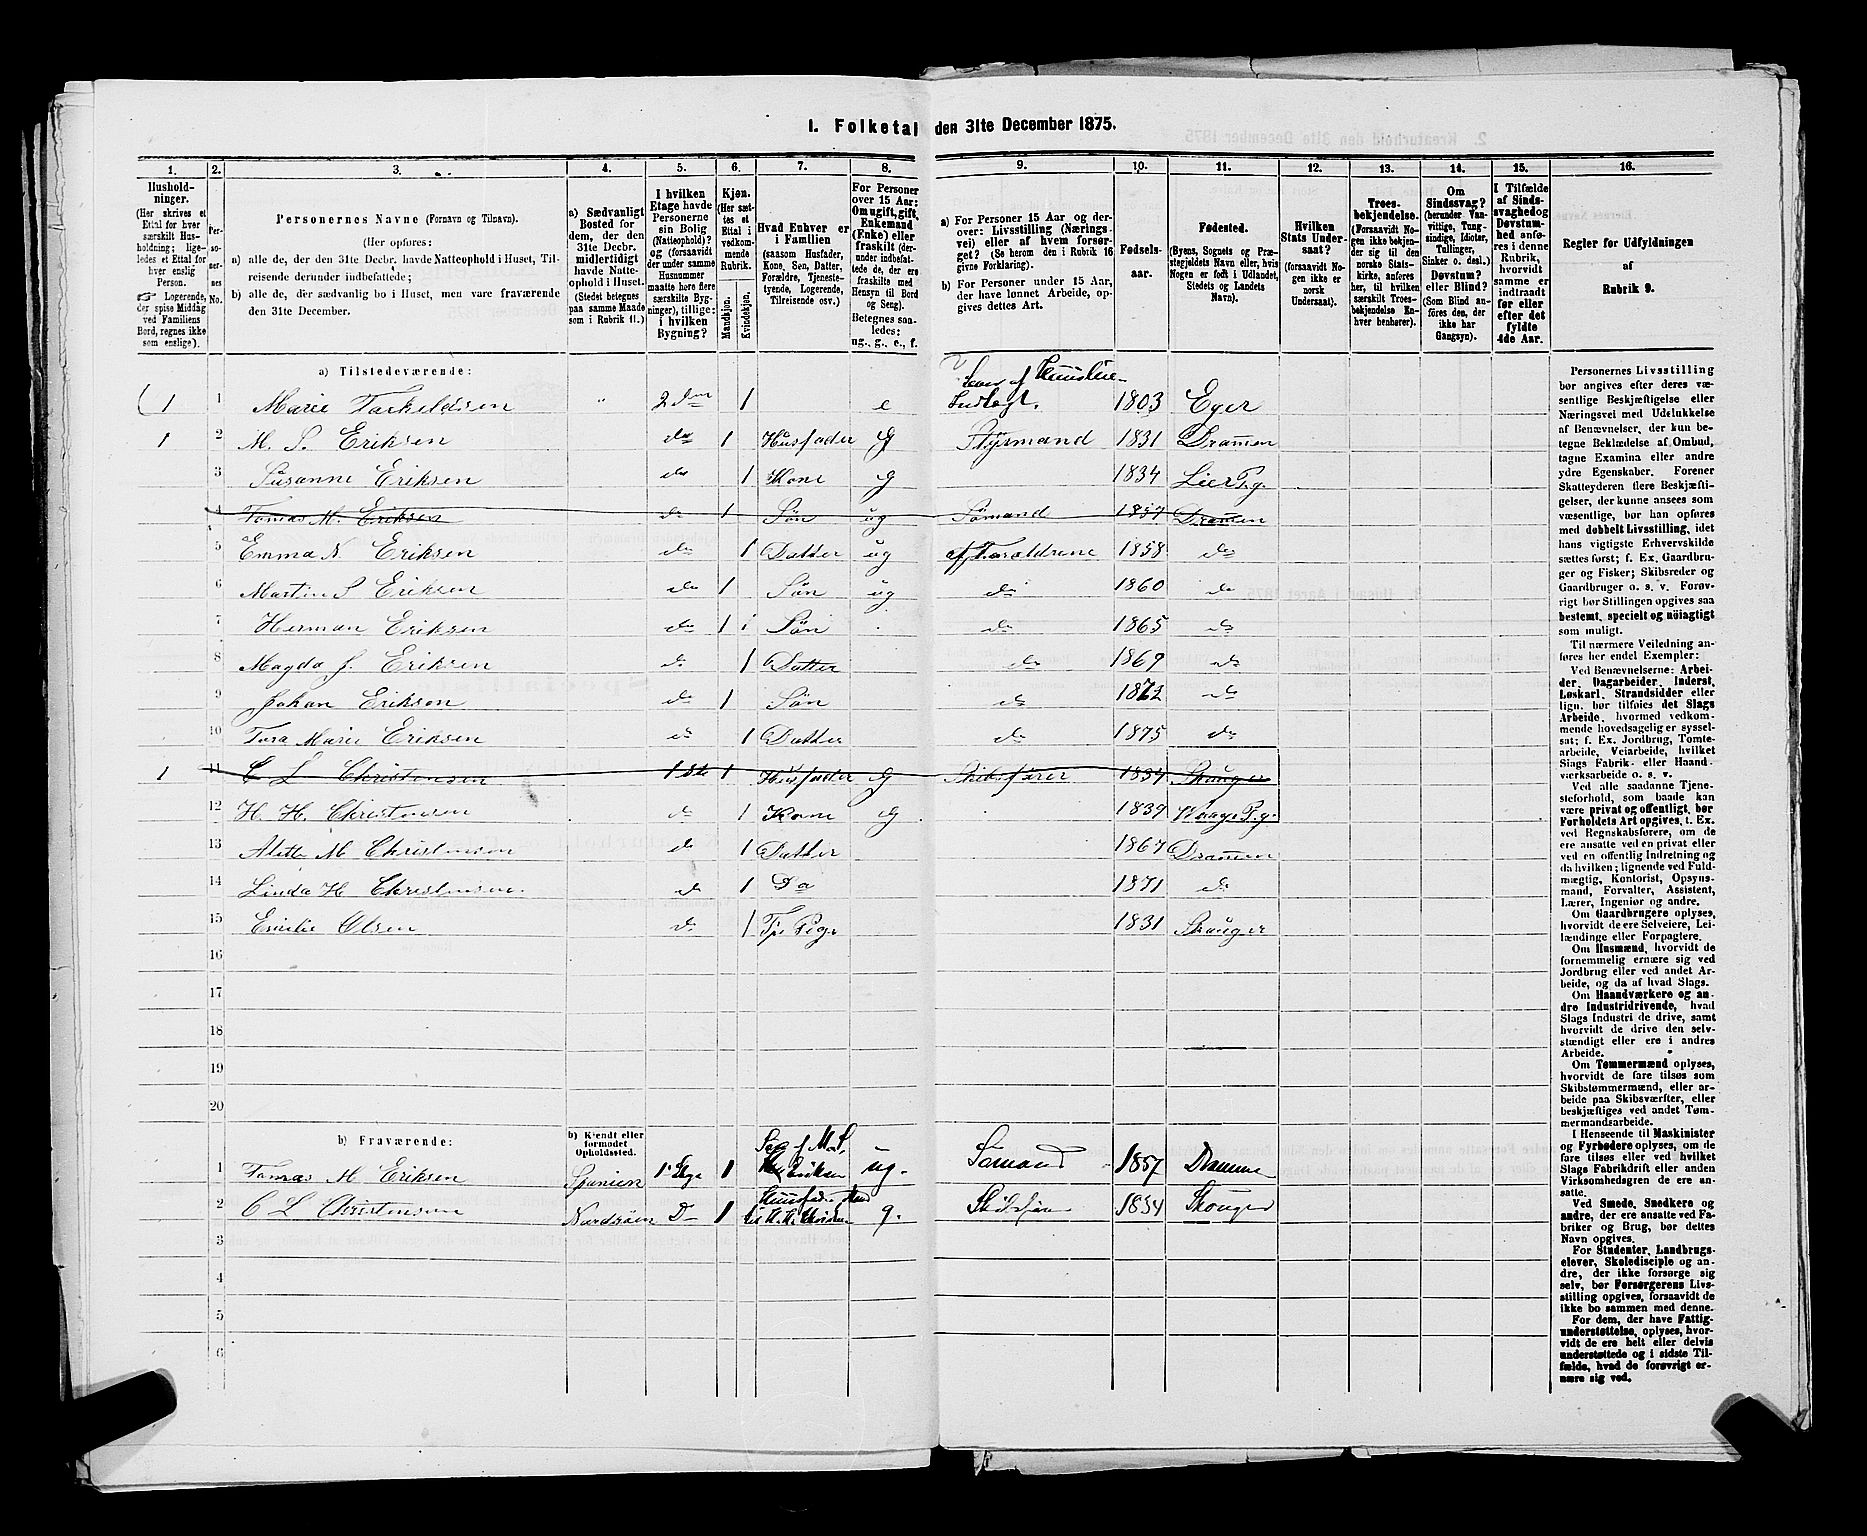 I. Folketal den 31te December 1875.
1. 2. 3. 4. 5. 6. 7. 8. 9. 10. 11. 12. 13. 14. 15. 16.
Husholdninger.
(Her skrives et Ettal for hver særskilt Husholdning; ligeledes et Ettal for hver enslig Person.
Logerende, der spise Middag ved Familiens Bord, regnes ikke som enslige).
Personernes No.
Personernes Navne (Fornavn og Tilnavn).
(Her opføres:
a) alle de, der den 31te Decbr. havde Natteophold i Huset, Tilreisende derunder indbefattede;
b) alle de, der sædvanlig bo i Huset, men vare fraværende den 31te December.
a) Sædvanligt Bosted for dem, der den 31te Decbr. midlertidigt havde Natteophold i Huset.
(Stedet betegnes paa samme Maade som i Rubrik 11.)
I hvilken Etage havde Personerne sin Bolig (Natteophold)? og (forsaavidt der under samme Husnummer maatte høre flere særskilte Bygninger), tillige: i hvilken Bygning?
Kjøn.
(Her sættes et Ettal i vedkommende Rubrik.
Mandskjøn.
Kvindekjøn.
Hvad Enhver er i Familien
(saasom Husfader, Kone, Søn, Datter, Forældre, Tjenestetyende, Logerende, Tilreisende osv.)
For Personer over 15 Aar: Om ugift, gift, Enkemand (Enke) eller fraskilt (derunder indbefattede de, der ere fraskilte med Hensyn til Bord og Seng).
Betegnes saaledes: ug., g., e., f.
a) For Personer 15 Aar og derover: Livsstilling (Næringsvei) eller af hvem forsørget? (Se herom den i Rubrik 16 givne Forklaring).
b) For Personer under 15 Aar, der have lønnet Arbeide, opgives dettes Art.
Fødselsaar.
Fødested.
(Byens, Sognets og Præstegjeldets Navn eller, hvis Nogen er født i Udlandet, Stedets og Landets Navn).
Hvilken Stats Undersaat?
(forsaavidt Nogen ikke er norsk Undersaat).
Troesbekjendelse.
(Forsaavidt Nogen ikke bekjender sig til den norske Statskirke, anføres her, til hvilken særskilt Troesbekjendelse Enhver henhører).
Om Sindssvag? (herunder Vanvittige, Tungsindige, Idioter, Tullinger, Sinker o. desl.) Døvstum? eller Blind?
(Som Blind anføres den, der ikke har Gangsyn).
I Tilfælde af Sindssvaghed og Døvstumhed anføres i denne Rubrik, hvorvidt samme er indtraadt før eller efter det fyldte 4de Aar.
Regler for Udfyldningen af Rubrik 9.
a) Tilstedeværende:
1 1 Marie Torkeldsen " 2den 1 e Lever af Huusleie Indlagt. 1803 Eger
1 2 M. S. Eriksen do 1 Husfader g Styrmand 1831 Dramen
3 Susanne Eriksen do 1 Kone g 1834 Lier P.g.
4 Tomas M. Eriksen do 1 Søn ug Sømand 1857 Dramen
5 Emma N Eriksen do 1 Datter ug af Foraldrene 1858 do
6 Martin S Eriksen do 1 Søn ug do 1860 do
7 Herman Eriksen do 1 Søn do 1865 do
8 Magda J. Eriksen do 1 Datter do 1869 do
9 Johan Eriksen do 1 Søn do 1872 do
10 Tora Marie Eriksen do 1 Datter do 1875 do
1 11 C L Christensen 1ste 1 Husfader g Skibsfører 1834 Skouger
12 H. H. Christensen do 1 Kone g 1839 P.g.
13 M Christensen do 1 Datter 1867 Dramen
14 Linda H Christensen. do 1 Do 1871 do
15 Emilie Olsen do 1 Tje Pige 1831 Skouger
16
17
18
19
20
b) Fraværende:
b) Kjendt eller formodet Opholdssted.
1 Tomas M. Eriksen Spanien 1 Etage 1 Søn af M. S. Eriksen ug. Sømand 1857 Drammen
2 C L Christensen Nordsøen Do 1 Huusfader, Mand til H. H. Christensen g. Skibsfører 1834 Skouger
3
4
5
6
Personernes Livsstilling bør angives efter deres væsentlige Beskjæftigelse eller Næringsvei med Udelukkelse af Benævnelser, der kun betegne Beklædelse af Ombud, tagne Examina eller andre ydre Egenskaber. Forener Skatteyderen flere Beskjæftigelser, der kunne ansees som væsentlige, bør han opføres med dobbelt Livsstilling, idet hans vigtigste Erhvervskilde sættes først; f. Ex. Gaardbruger og Fisker; Skibsreder og Gaardbruger o. s. v. Forøvrigt bør Stillingen opgives saa bestemt, specielt og nöiagtigt som muligt.
Til nærmere Veiledning anføres her endel Exempler:
Ved Benævnelserne: Arbeider, Dagarbeider, Inderst, Løskarl, Strandsidder eller lign. bør tilføies det Slags Arbeide, hvormed vedkommende hovedsagelig er sysselsat; f. Ex. Jordbrug, Tomtearbeide, Veiarbeide, hvilket Slags Fabrik- eller Haandværksarbeide o. s. v.
Ved alle saadanne Tjenesteforhold, som baade kan være privat og offentligt, bør Forholdets Art opgives, t. Ex. ved Regnskabsførere, om de ere ansatte ved en privat eller ved en offentlig Indretning og da hvilken; lignende ved Fuldmægtig, Kontorist, Opsynsmand, Forvalter, Assistent, Lærer, Ingeniør og andre.
Om Gaardbrugere oplyses, hvorvidt de ere Selveiere, Leilændinge eller Forpagtere.
Om Husmænd, hvorvidt de fornemmelig ernære sig ved Jordbrug eller ved andet Arbeide, og da af hvad Slags.
Om Haandværkere og andre Industridrivende, hvad Slags Industri de drive, samt hvorvidt de drive den selvstændigt eller ere i andres Arbeide.
Om Tømmermænd oplyses, hvorvidt de fare tilsøs som Skibstømmermænd, eller arbeide paa Skibsværfter, eller beskjæftiges ved andet Tømmermandsarbeide.
I Henseende til Maskinister og Fyrbødere oplyses, om de fare tilsøs eller ved hvilket Slags Fabrikdrift eller anden Virksomhedsgren de ere ansatte.
Ved Smede, Snedkere og andre, der ere ansatte ved Fabriker og Brug, bør dettes Navn opgives.
For Studenter, Landbrugselever, Skoledisciple og andre, der ikke forsørge sig selv, bør Forsørgerens Livsstilling opgives, forsaavidt de ikke bo sammen med denne.
For dem, der have Fattigunderstøttelse, oplyses, hvorvidt de ere helt eller delvis understøttede og i sidste Tilfælde, hvad de forøvrigt ernære sig ved.